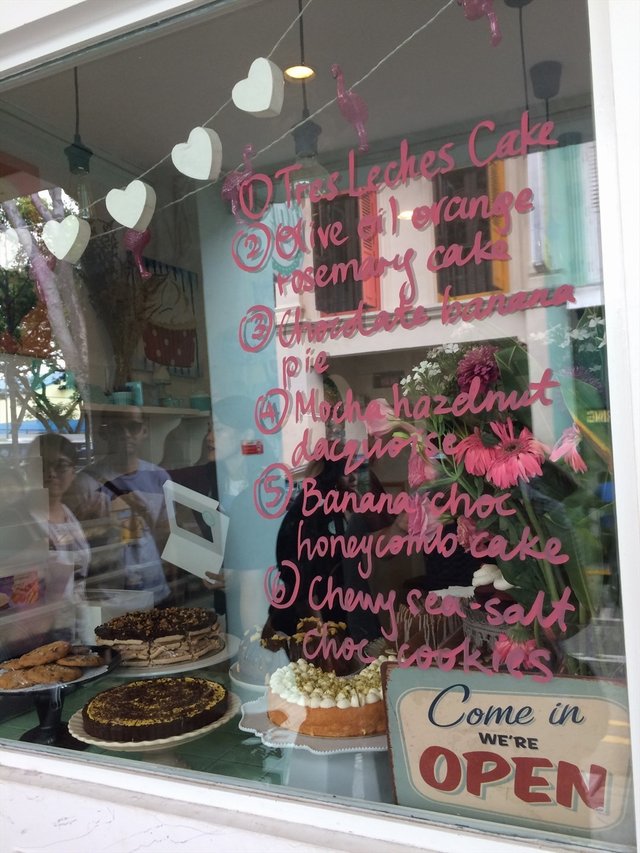 ① Tres Leches Cake
② Olive oil orange
rosemary cake
③ Chocolate banana
pie
④ Mocha hazelnut
dacquoise
⑤ Banana choc
honeycomb cake
⑥ Chewy sea-salt
choc cookies
Come in
WE'RE
OPEN